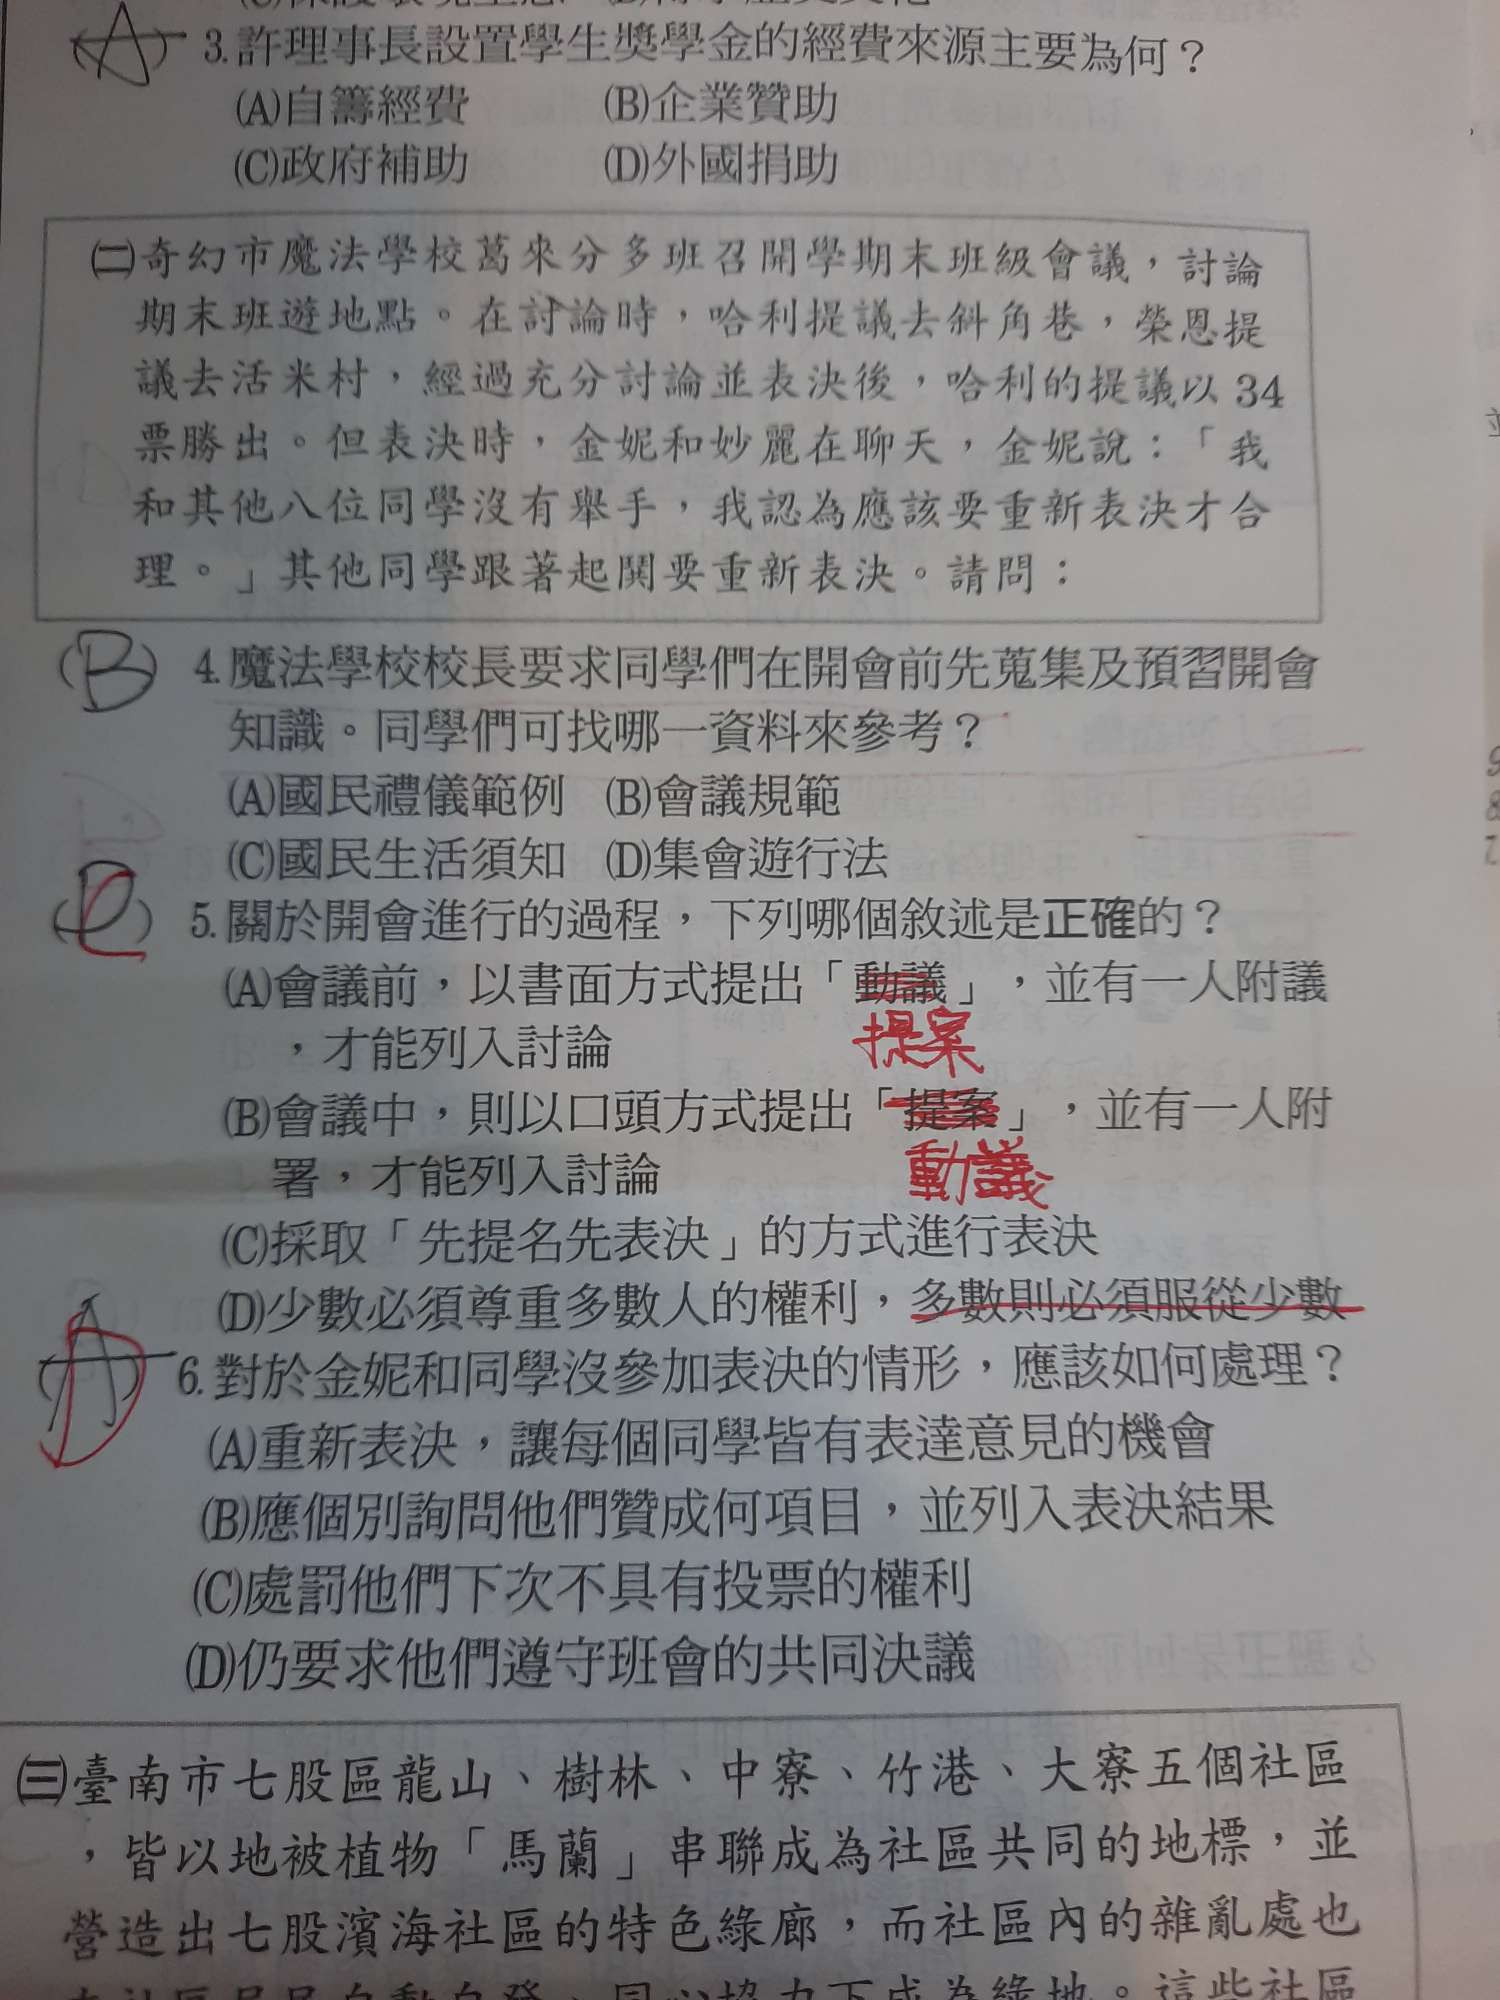 (A) 3.許理事長設置學生獎學金的經費來源主要為何？
(A)自籌經費 (B)企業贊助
(C)政府補助 (D)外國捐助
㈡奇幻市魔法學校葛來分多班召開學期末班級會議，討論
期末班遊地點。在討論時，哈利提議去斜角巷，榮恩提
議去活米村，經過充分討論並表決後，哈利的提議以34
票勝出。但表決時，金妮和妙麗在聊天，金妮說：「我
和其他八位同學沒有舉手，我認為應該要重新表決才合
理。」其他同學跟著起鬨要重新表決。請問：
(B) 4.魔法學校校長要求同學們在開會前先蒐集及預習開會
知識。同學們可找哪一資料來參考？
(A)國民禮儀範例 (B)會議規範
(C)國民生活須知 (D)集會遊行法
(C) 5.關於開會進行的過程，下列哪個敘述是正確的？
(A)會議前，以書面方式提出「動議」，並有一人附議
，才能列入討論
提案
(B)會議中，則以口頭方式提出「提案」，並有一人附
署，才能列入討論
動議
(C)採取「先提名先表決」的方式進行表決
(D)少數必須尊重多數人的權利，多數則必須服從少數
(D) 6.對於金妮和同學沒參加表決的情形，應該如何處理？
(A)重新表決，讓每個同學皆有表達意見的機會
(B)應個別詢問他們贊成何項目，並列入表決結果
(C)處罰他們下次不具有投票的權利
(D)仍要求他們遵守班會的共同決議
㈢臺南市七股區龍山、樹林、中寮、竹港、大寮五個社區
，皆以地被植物「馬蘭」串聯成為社區共同的地標，並
營造出七股濱海社區的特色綠廊，而社區內的雜亂處也